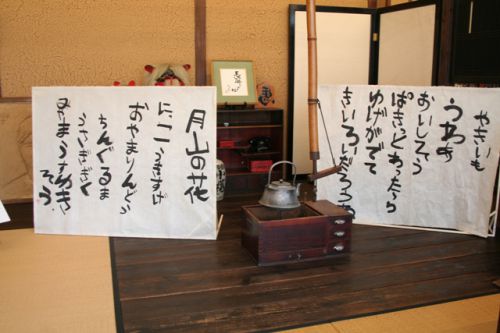 月山の花
にっこうきすげ
おやまりんどう
ちんぐるま
うさぎぎく
みやまうすゆき
そう
やきいも
おいしそう
ぱきっとわったら
ゆげがでて
きいろい